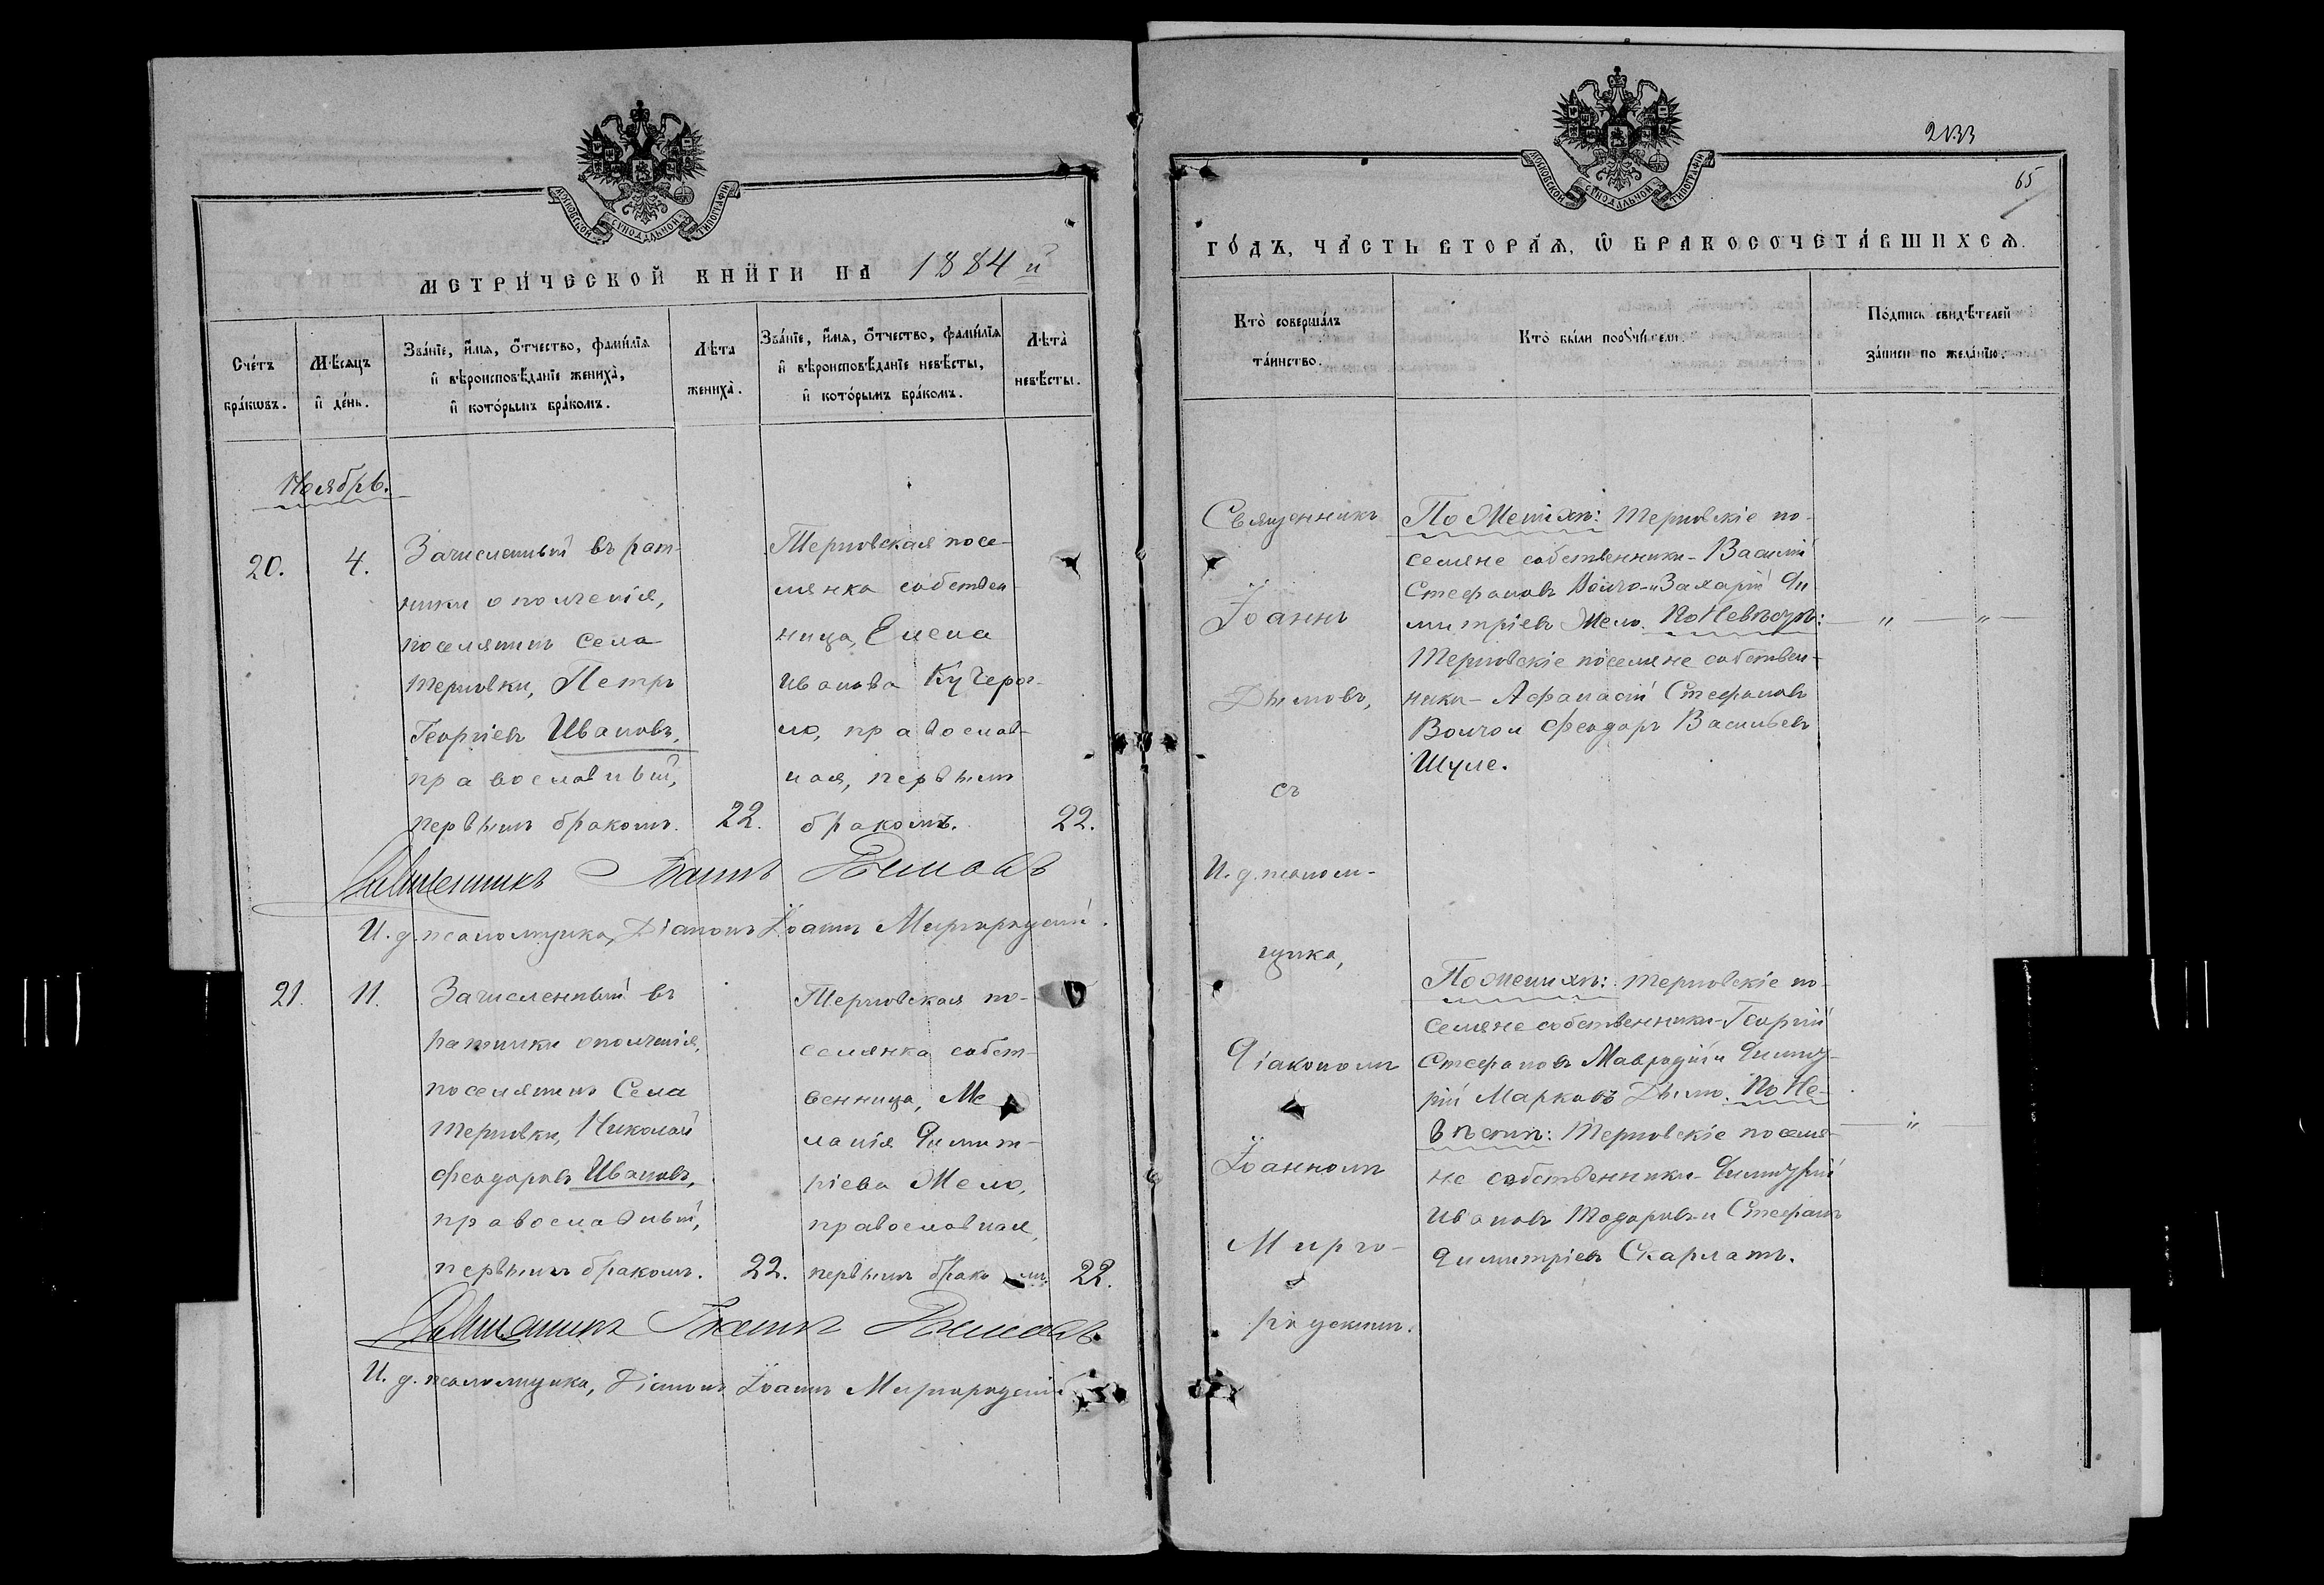 МОСКОВСКОЙ СѴНОДАЛЬНОЙ ТИПОГРАФІИ
МЕТРИ́ЧЕСКОЙ КНИ́ГИ НА 1884 й
Сче́тъ бра́кѡвъ.
Мѣ́сяцъ и҆ де́нь.
Зва́нїе, и҆́мя, ѻ҆́тчество, фами́лїя
и҆ вѣроисповѣ́данїе жениха̀,
и҆ кото́рымъ бра́комъ.
Лѣ́та
жениха̀.
Зва́нїе, и҆́мя, ѻ҆́тчество, фами́лїя
и҆ вѣроисповѣ́данїе невѣ́сты,
и҆ кото́рымъ бра́комъ.
Лѣ́та
невѣ́сты.
Ноябрь.
20.
4.
Зачисленный въ рат-
ники ополченія,
поселянинъ Села
Терновки, Петръ
Георгіевъ Ивановъ,
православный,
первымъ бракомъ.
22.
Терновская посе-
лянка собствен-
ница, Елена
Иванова Кучеро-
ло, православ-
ная, первымъ
бракомъ.
22.
Священникъ Іоаннъ Дымовъ
И. д. псаломщика, Діаконъ Іоаннъ Миргородскій.
21.
11.
Зачисленный въ
ратники ополченія,
поселянинъ Села
Терновки, Николай
Феодоровъ Ивановъ,
православный,
первымъ бракомъ.
22.
Терновская по-
селянка собст-
венница, Ме
ланія Димит-
ріева Жело,
православная,
первымъ бракомъ.
22.
Священникъ Іоаннъ Дымовъ
И. д. псаломщика, Діаконъ Іоаннъ Миргородскій
МОСКОВСКОЙ СѴНОДАЛЬНОЙ ТИПОГРАФІИ
65
ГО́ДЪ, ЧА́СТЬ ВТОРА́Я, Ѡ҆ БРАКОСОЧЕТА́ВШИХСЯ.
Кто̀ соверша́лъ
та́инство.
Кто̀ бы́ли поручи́тели.
По́дпись свидѣ́телей
за́писи по жела́нїю.
Священникъ
Іоаннъ
Дымовъ,
съ
И. д. псалом-
щика,
Діакономъ
Іоанномъ
Мирго-
родскимъ.
По Женихѣ: Терновскіе по-
селяне собственники - Василій
Стефановъ Волчо и Захарій Ди-
митріевъ Жело. По Невѣстѣ:
Терновскіе поселяне собствен-
ники - Афанасій Стефановъ
Волчо и Феодоръ Васильевъ
Шуле.
По Женихѣ: Терновскіе по-
селяне собственники - Георгій
Стефановъ Мавродій и Димит-
рій Марковъ Дымо. По Не-
вѣстѣ: Терновскіе поселя-
не собственники - Димитрій
Ивановъ Тодоровъ и Стефанъ
Димитріевъ Скарлатъ.